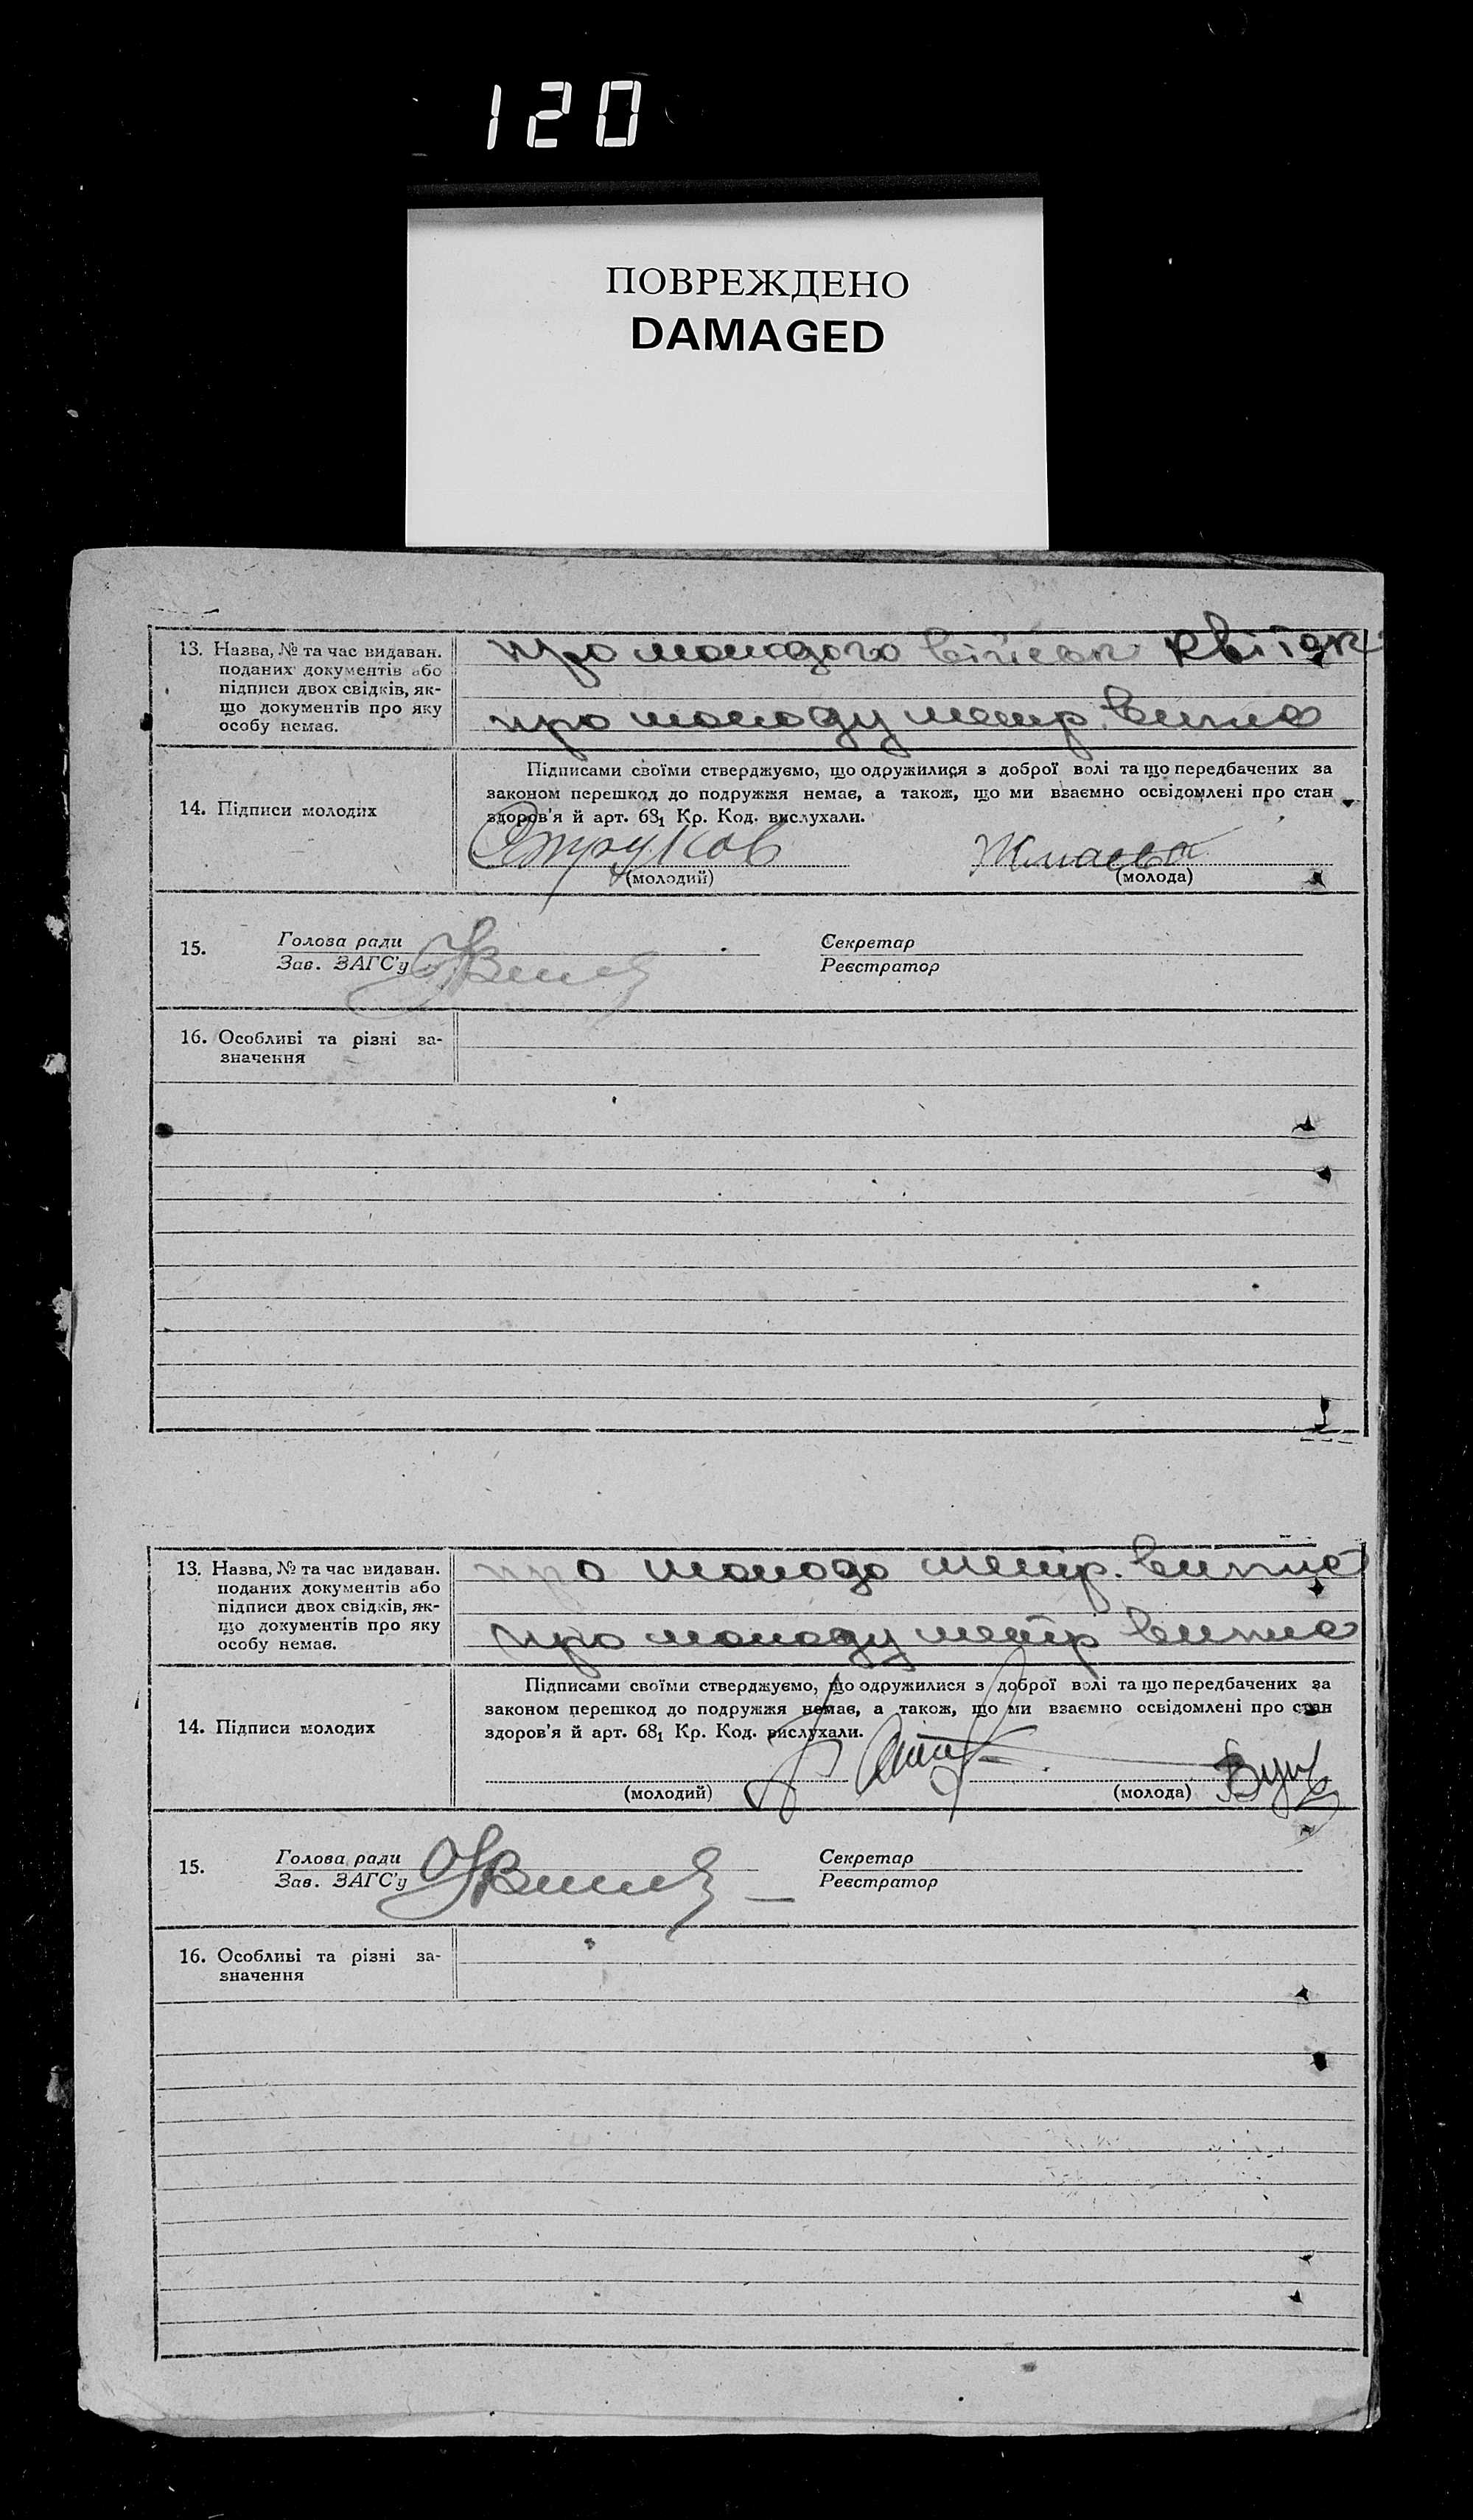 120
ПОВРЕЖДЕНО
DAMAGED
13. Назва, № та час видаван.
поданих документів або
підписи двох свідків, як-
що документів про яку
особу немає.
про молодого військ квіток
про молоду метр випис
14. Підписи молодих
Підписами своїми стверджуємо, що одружилися з доброї волі та що передбачених за
законом перешкод до подружжя немає, а також, що ми взаємно освідомлені про стан
здоров'я й арт. 68₁ Кр. Код. вислухали.
(молодий)
(молода)
15.
Голова ради
Зав. ЗАГС'у
Секретар
Реєстратор
16. Особливі та різні за-
значення
13. Назва, № та час видаван.
поданих документів або
підписи двох свідків, як-
що документів про яку
особу немає.
про молодо метр. випис
про молоду метр випис
14. Підписи молодих
Підписами своїми стверджуємо, що одружилися з доброї волі та що передбачених за
законом перешкод до подружжя немає, а також, що ми взаємно освідомлені про стан
здоров'я й арт. 68₁ Кр. Код. вислухали.
(молодий)
(молода)
15.
Голова ради
Зав. ЗАГС'у
Секретар
Реєстратор
16. Особливі та різні за-
значення